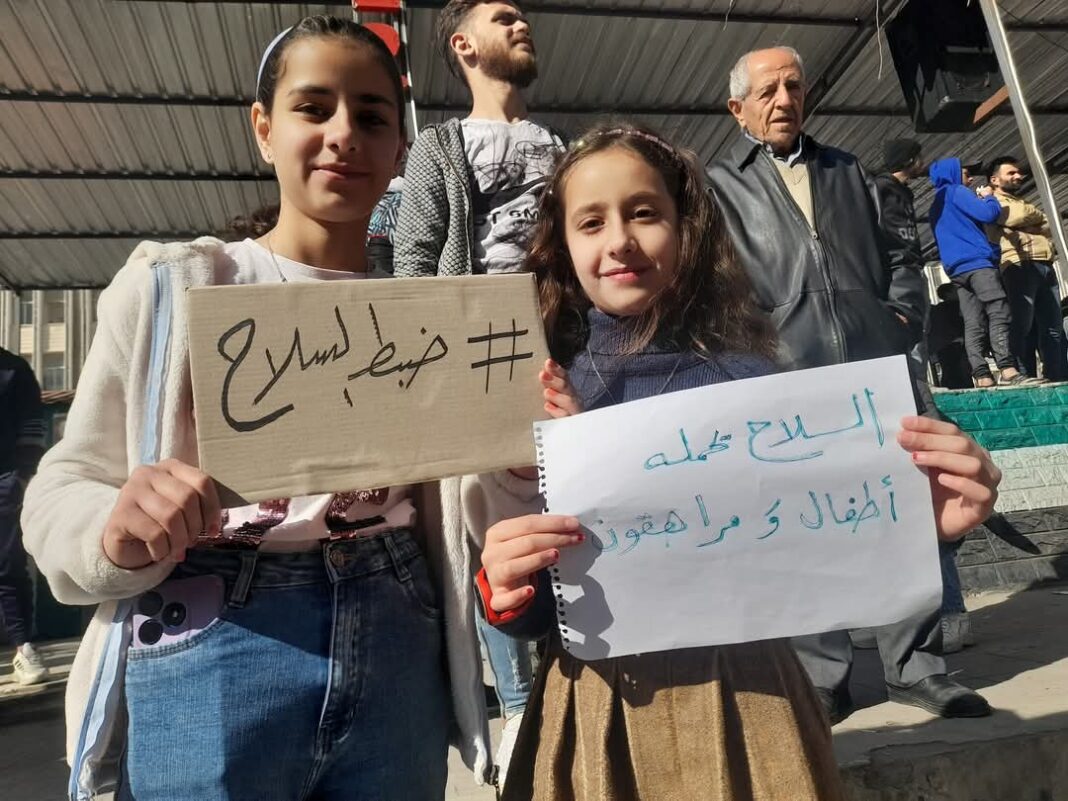 # ضبط لسلاح
السلاح يحمله
أطفال وَ مراهقون